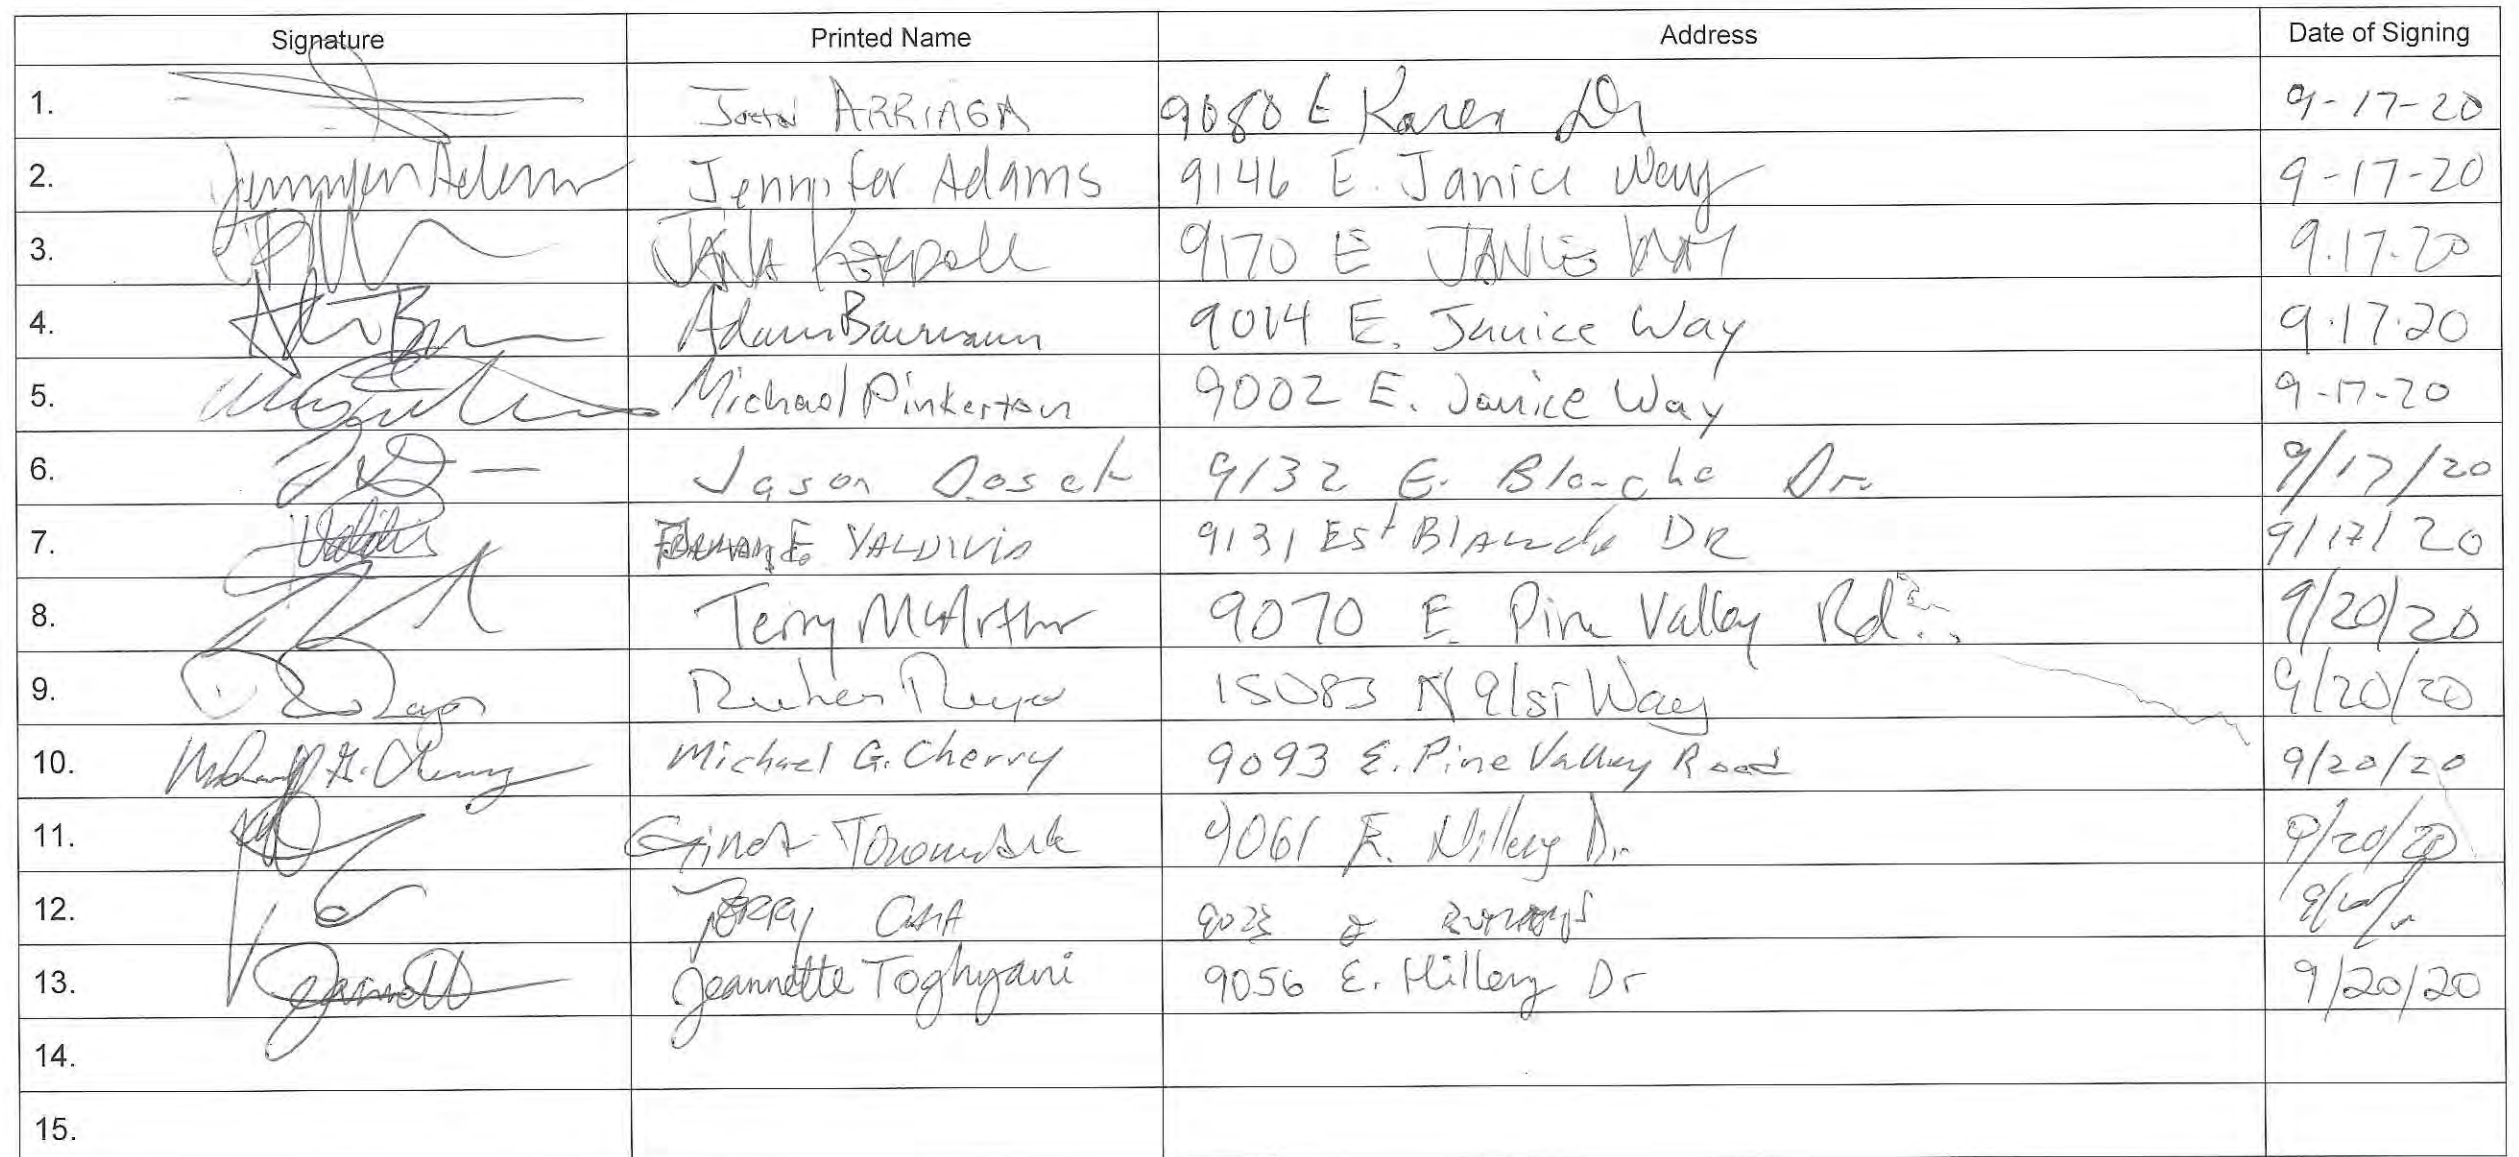 Signature Printed Name Address Date of Signing
1. ARRIAGA 9080 E Karen Dr 9-17-20
2. Jennifer Adams Jennifer Adams 9146 E. Janice Way 9-17-20
3. 9170 E JANICE WAY 9.17.20
4. Adam Baumann 9014 E. Janice Way 9.17.20
5. Michael Pinkerton 9002 E. Janice Way 9-17-20
6. Jason 9132 E. Blanche Dr. 9/17/20
7. VALDIVIA 9131 Est Blanche DR 9/17/20
8. Terry McArthur 9070 E. Pine Valley Rd 9/20/20
9. Ruben 15083 N 91st Way 9/20/20
10. Michael G. Cherry Michael G. Cherry 9093 E. Pine Valley Road 9/20/20
11. Gina 9061 E. Hillery Dr. 9/20/20
12. JERRY
13. Jeannette Toghyani 9056 E. Hillery Dr 9/20/20
14.
15.